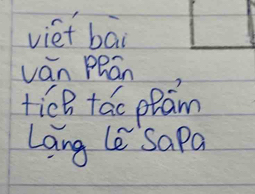 viết bài
văn Phân
tích tác phẩm
Lặng lẽ SaPa